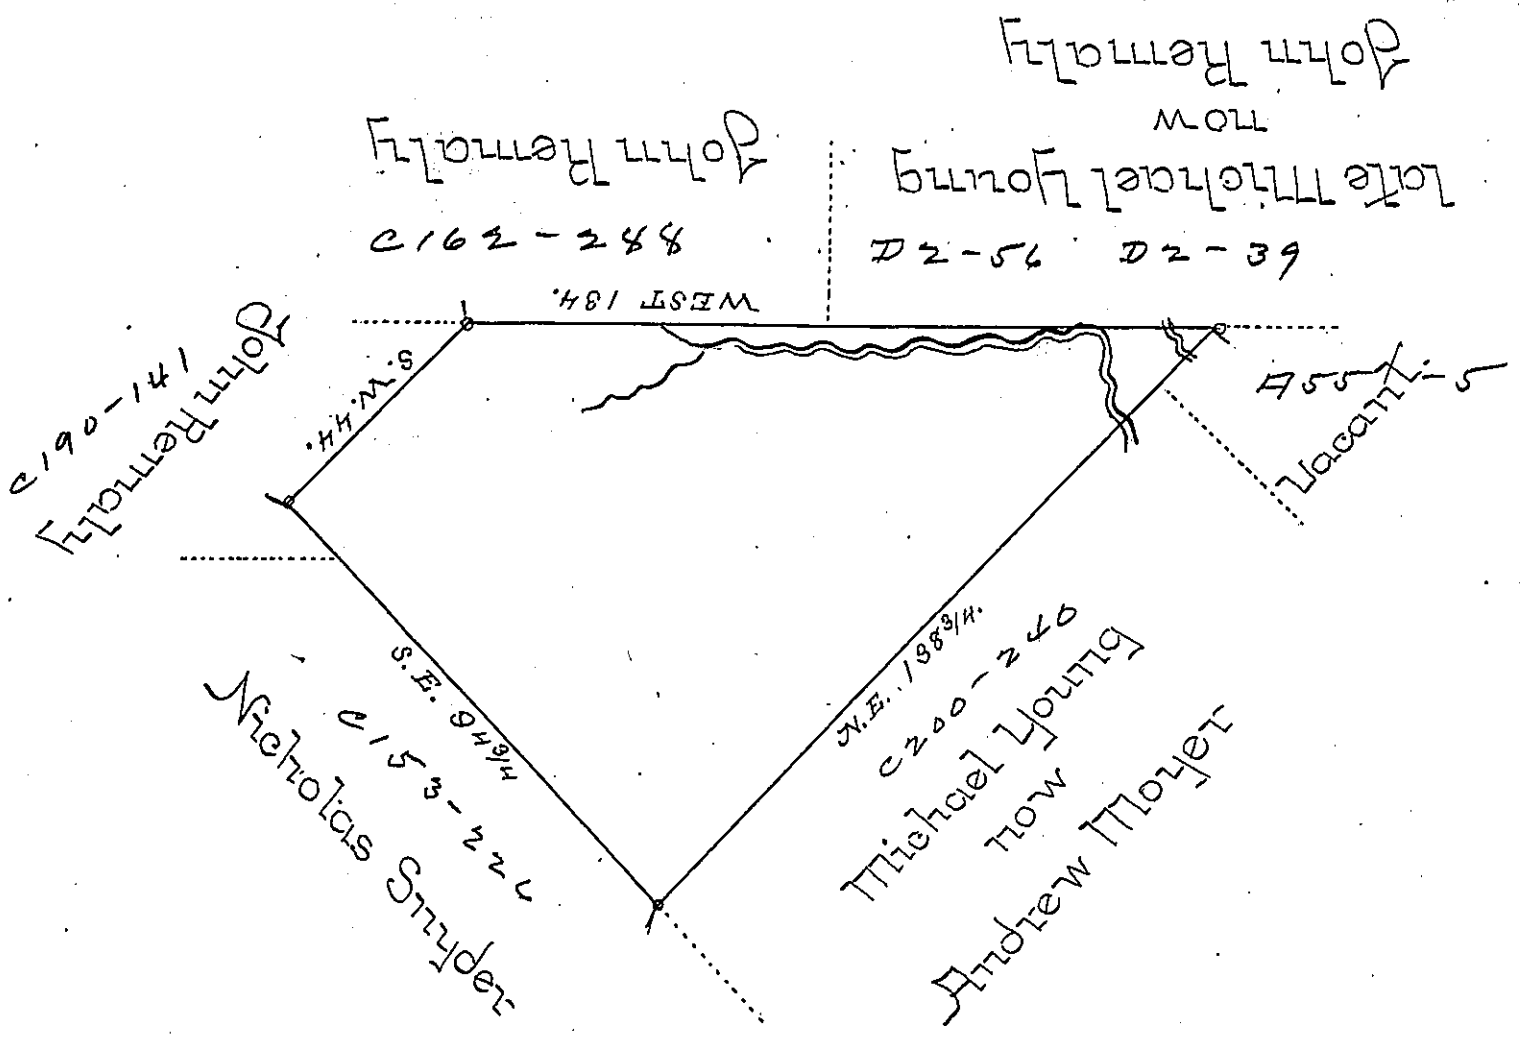 John Remaly
now
late Michael Young
D2-56 D2-39
John Remaly
C162-288
WEST 134.
John Remaly
C190-141
S.W. 44.
S.E. 94 3/4
C153-226
Nicholas Snyder
N.E. 138 3/4.
C200-240
Michael Young
now
Andrew Moyer
Vacant